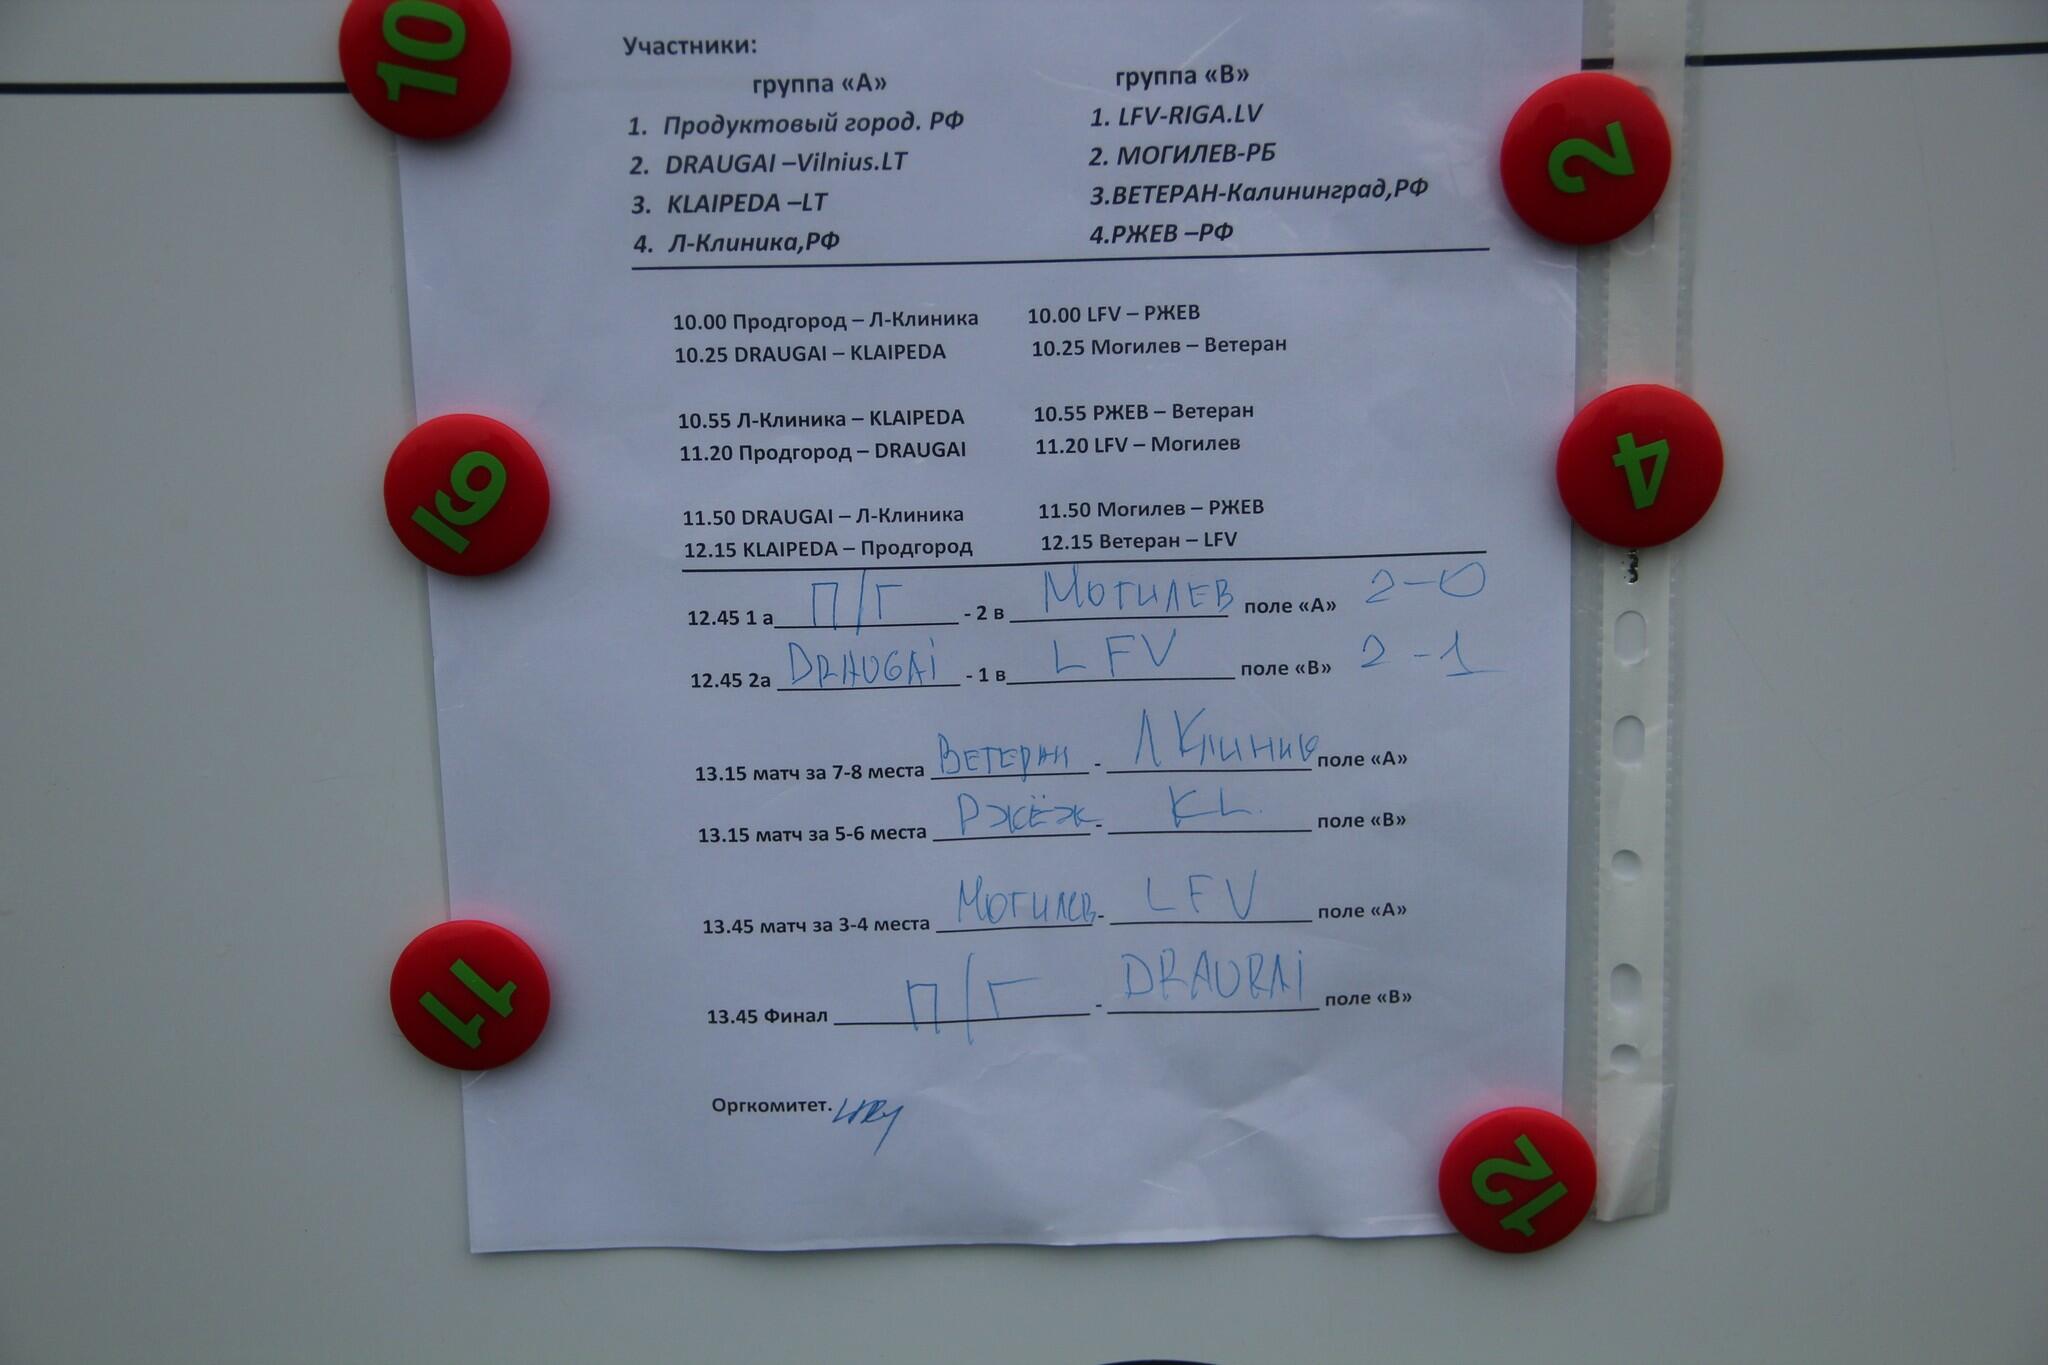 Участники:
группа «А» группа «В»
1. Продуктовый город. РФ 1. LFV-RIGA.LV
2. DRAUGAI –Vilnius.LT 2. МОГИЛЕВ-РБ
3. KLAIPEDA –LT 3.ВЕТЕРАН-Калининград,РФ
4. Л-Клиника,РФ 4.РЖЕВ –РФ
10.00 Продгород – Л-Клиника 10.00 LFV – РЖЕВ
10.25 DRAUGAI – KLAIPEDA 10.25 Могилев – Ветеран
10.55 Л-Клиника – KLAIPEDA 10.55 РЖЕВ – Ветеран
11.20 Продгород – DRAUGAI 11.20 LFV – Могилев
11.50 DRAUGAI – Л-Клиника 11.50 Могилев – РЖЕВ
12.15 KLAIPEDA – Продгород 12.15 Ветеран – LFV
12.45 1 а П/Г - 2 в Могилев поле «А» 2-0
12.45 2а DRAUGAi - 1 в LFV поле «В» 2-1
13.15 матч за 7-8 места Ветеран - Л Клиник поле «А»
13.15 матч за 5-6 места Ржёж - KL. поле «В»
13.45 матч за 3-4 места Могилев - LFV поле «А»
13.45 Финал П/Г - DRAURAi поле «В»
Оргкомитет.
10
2
9
4
11
12